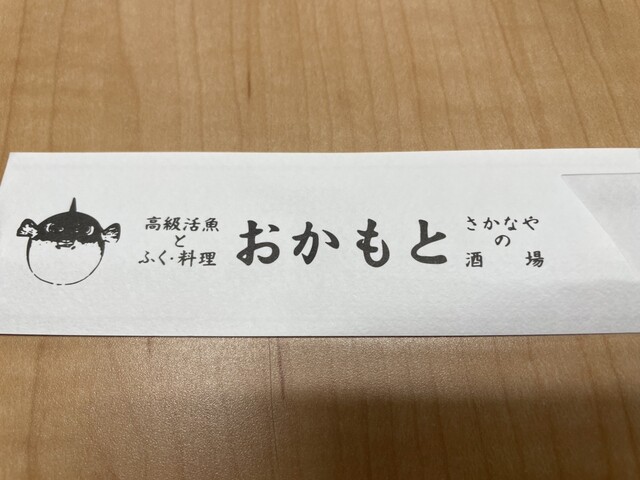 高級活魚
と
ふく・料理
おかもと
さかなや
の
酒場